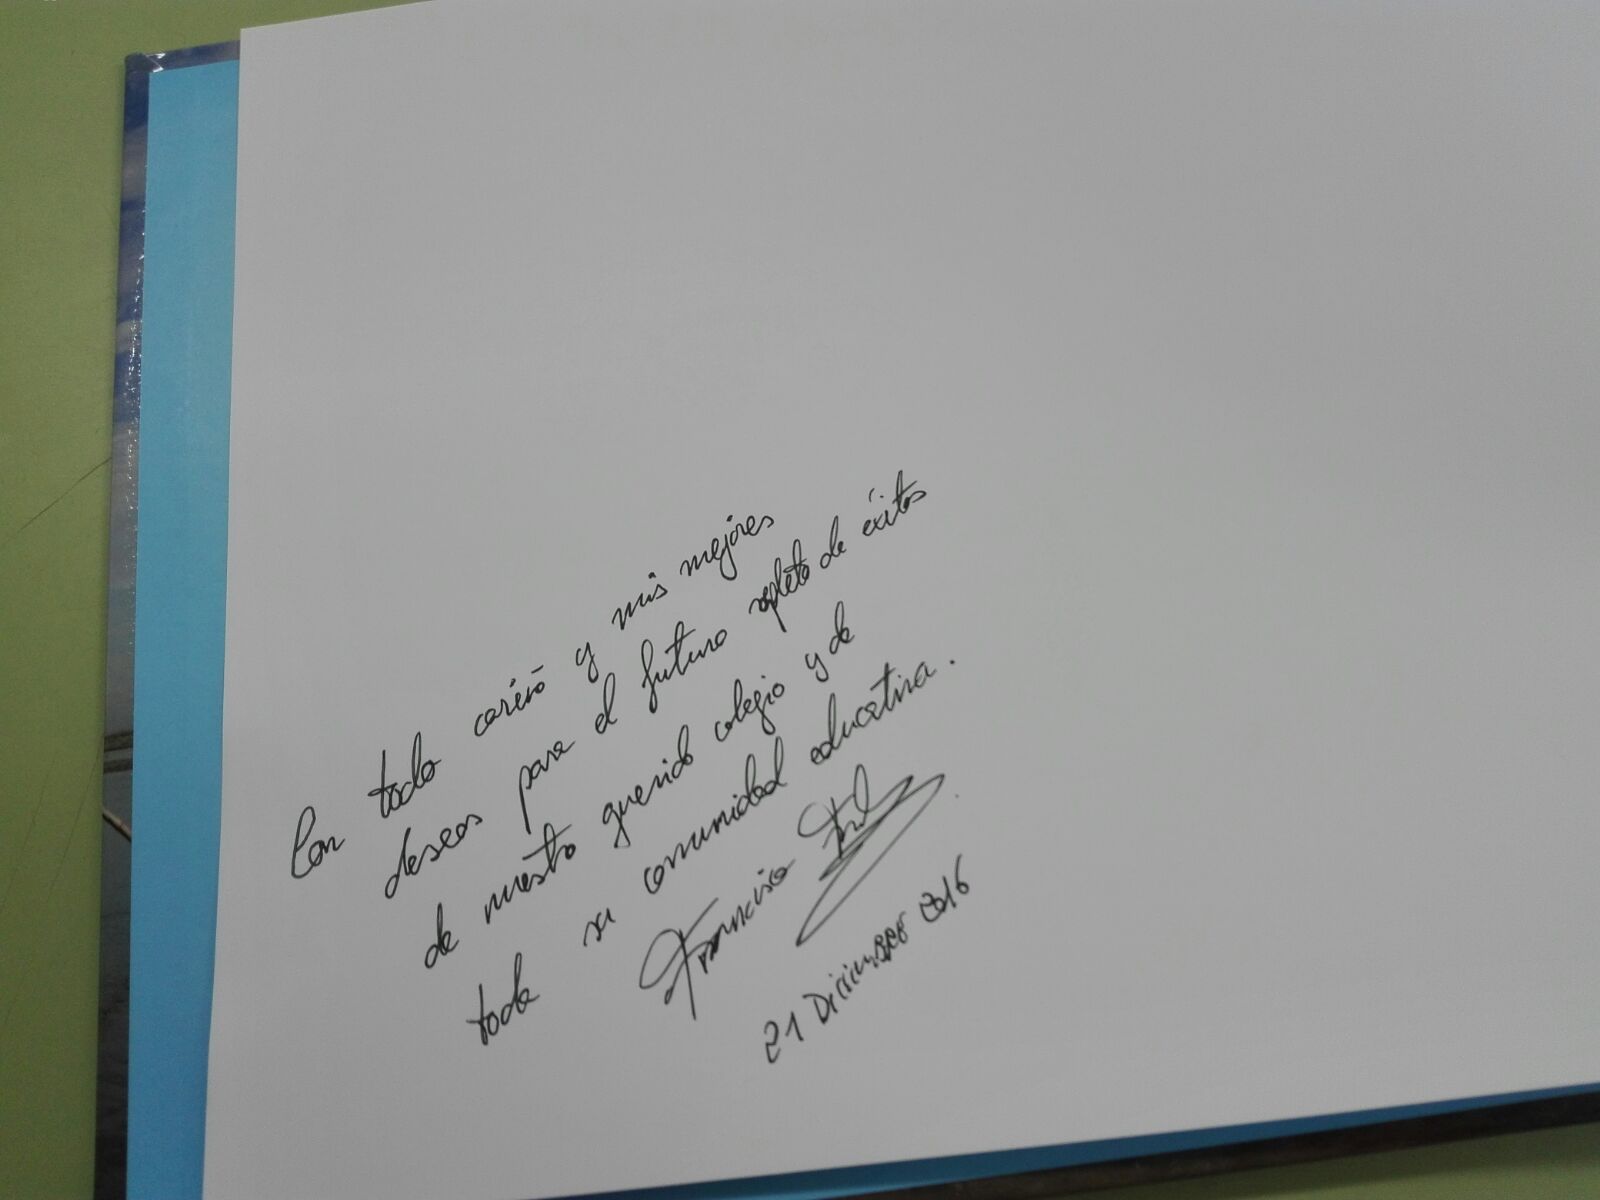 Con todo cariño y mis mejores
deseos para el futuro repleto de éxitos
de nuestro querido colegio y de
toda su comunidad educativa.
Francisco
21 Diciembre 2016